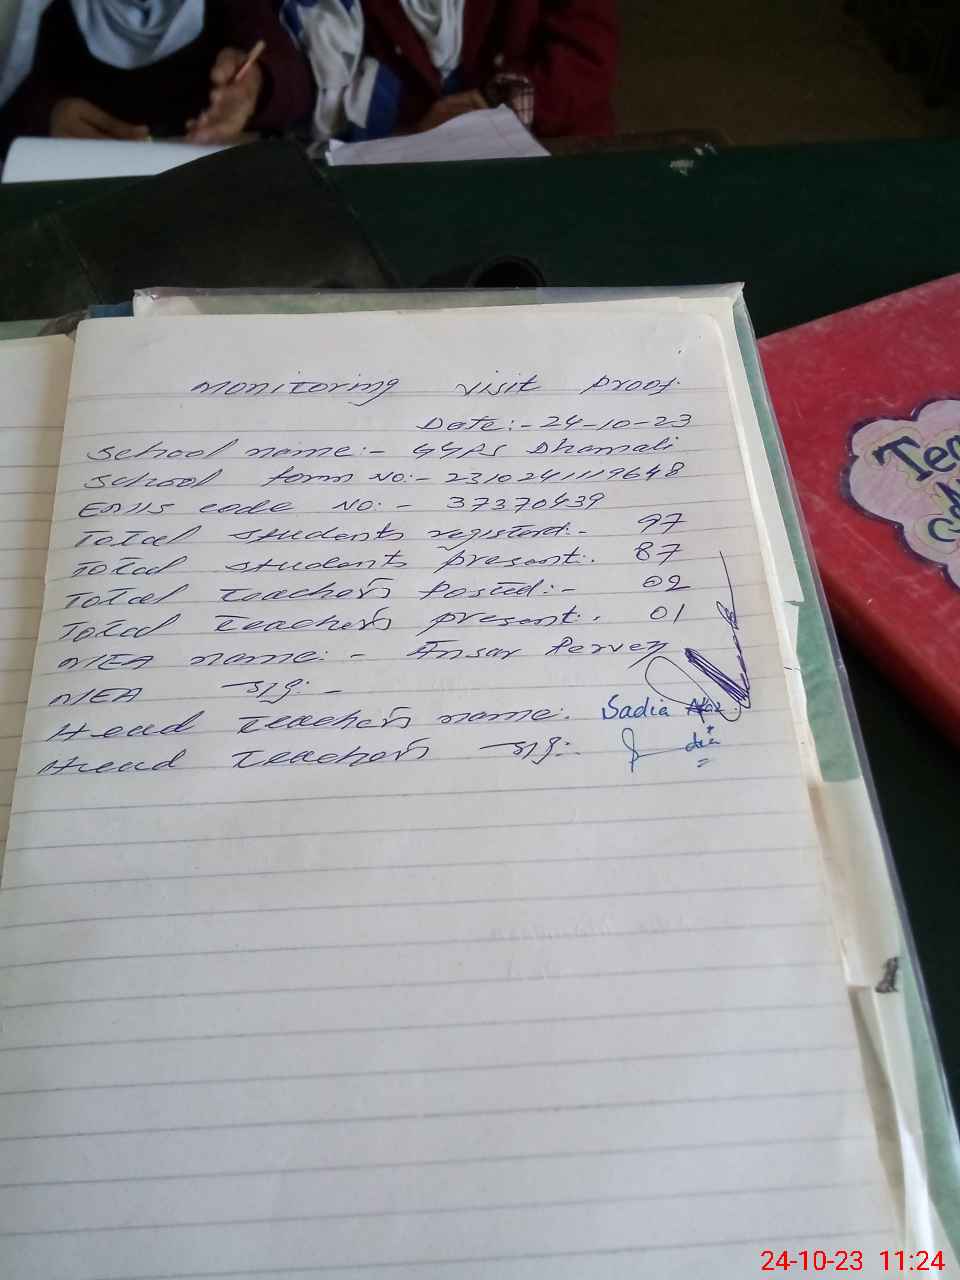 Monitoring visit proof.
Date:- 24-10-23
School name:- GGPS Dhamali
School form No:- 2310241119648
EMIS code No:- 37370439
Total students registerd:- 97
Total students present:. 87
Total teachers Posted:- 02
Total teachers present:. 01
MEA name:- Ansar Perven
MEA sig:-
Head teachers name:. Sadia
Head teachers sig:-
Tea
24-10-23 11:24